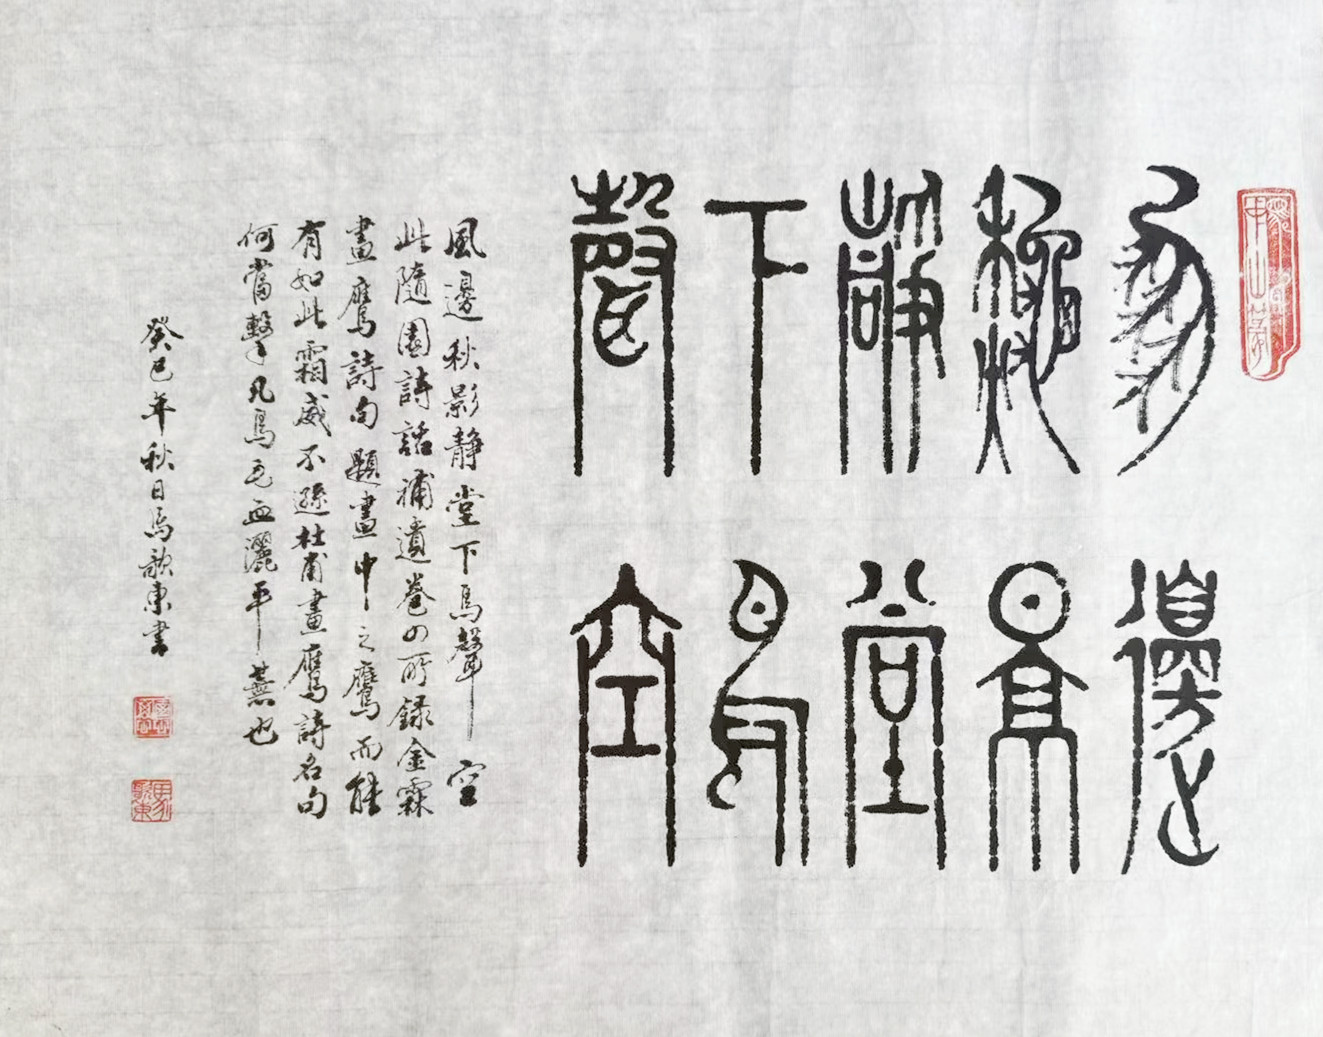 風邊
秋影
靜堂
下鳥
聲空
風邊秋影靜堂下鳥聲空
此隨園詩話補遺卷四所錄金霖
畫鷹詩句題畫中之鷹而能
有如此霜威不遜杜甫畫鷹詩名句
何當擊凡鳥毛血灑平蕪也
癸巳年秋日馬歌東書
馬歌東